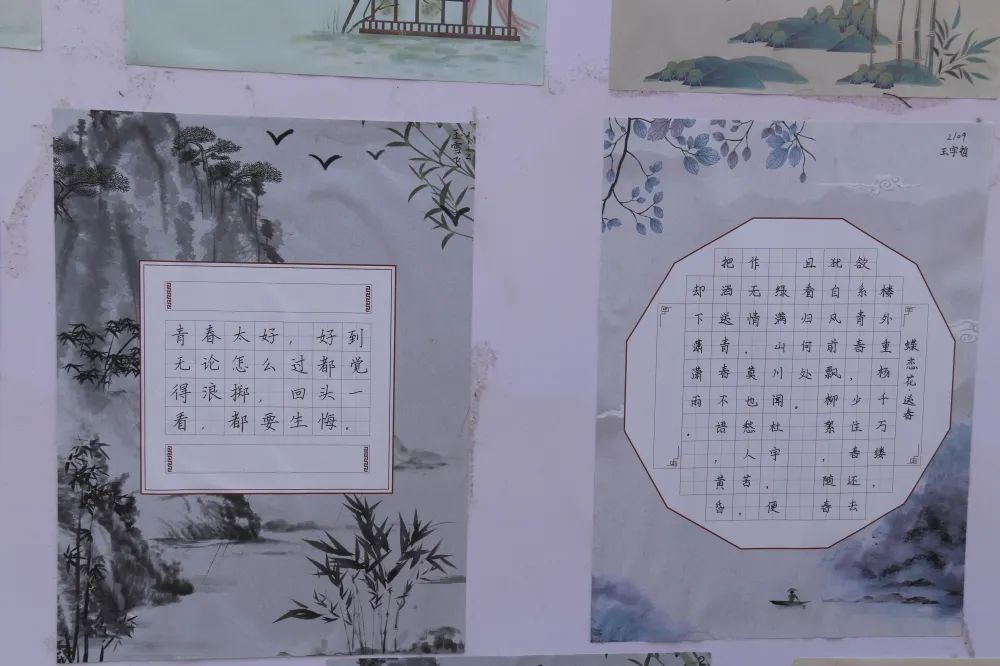 王雪飞
青春太好,好到
无论怎么过都觉
得浪掷,回头一
看,都要生悔.
2109
王宇哲
蝶恋花·送春
楼外重杨千万缕,
欲系青春,少住春还去
犹自风前飘柳絮,随春
且看归何处。
绿满山川闻杜宇,便
作无情,莫也愁人苦.
把洒送青春不语,黄昏
却下潇潇雨.